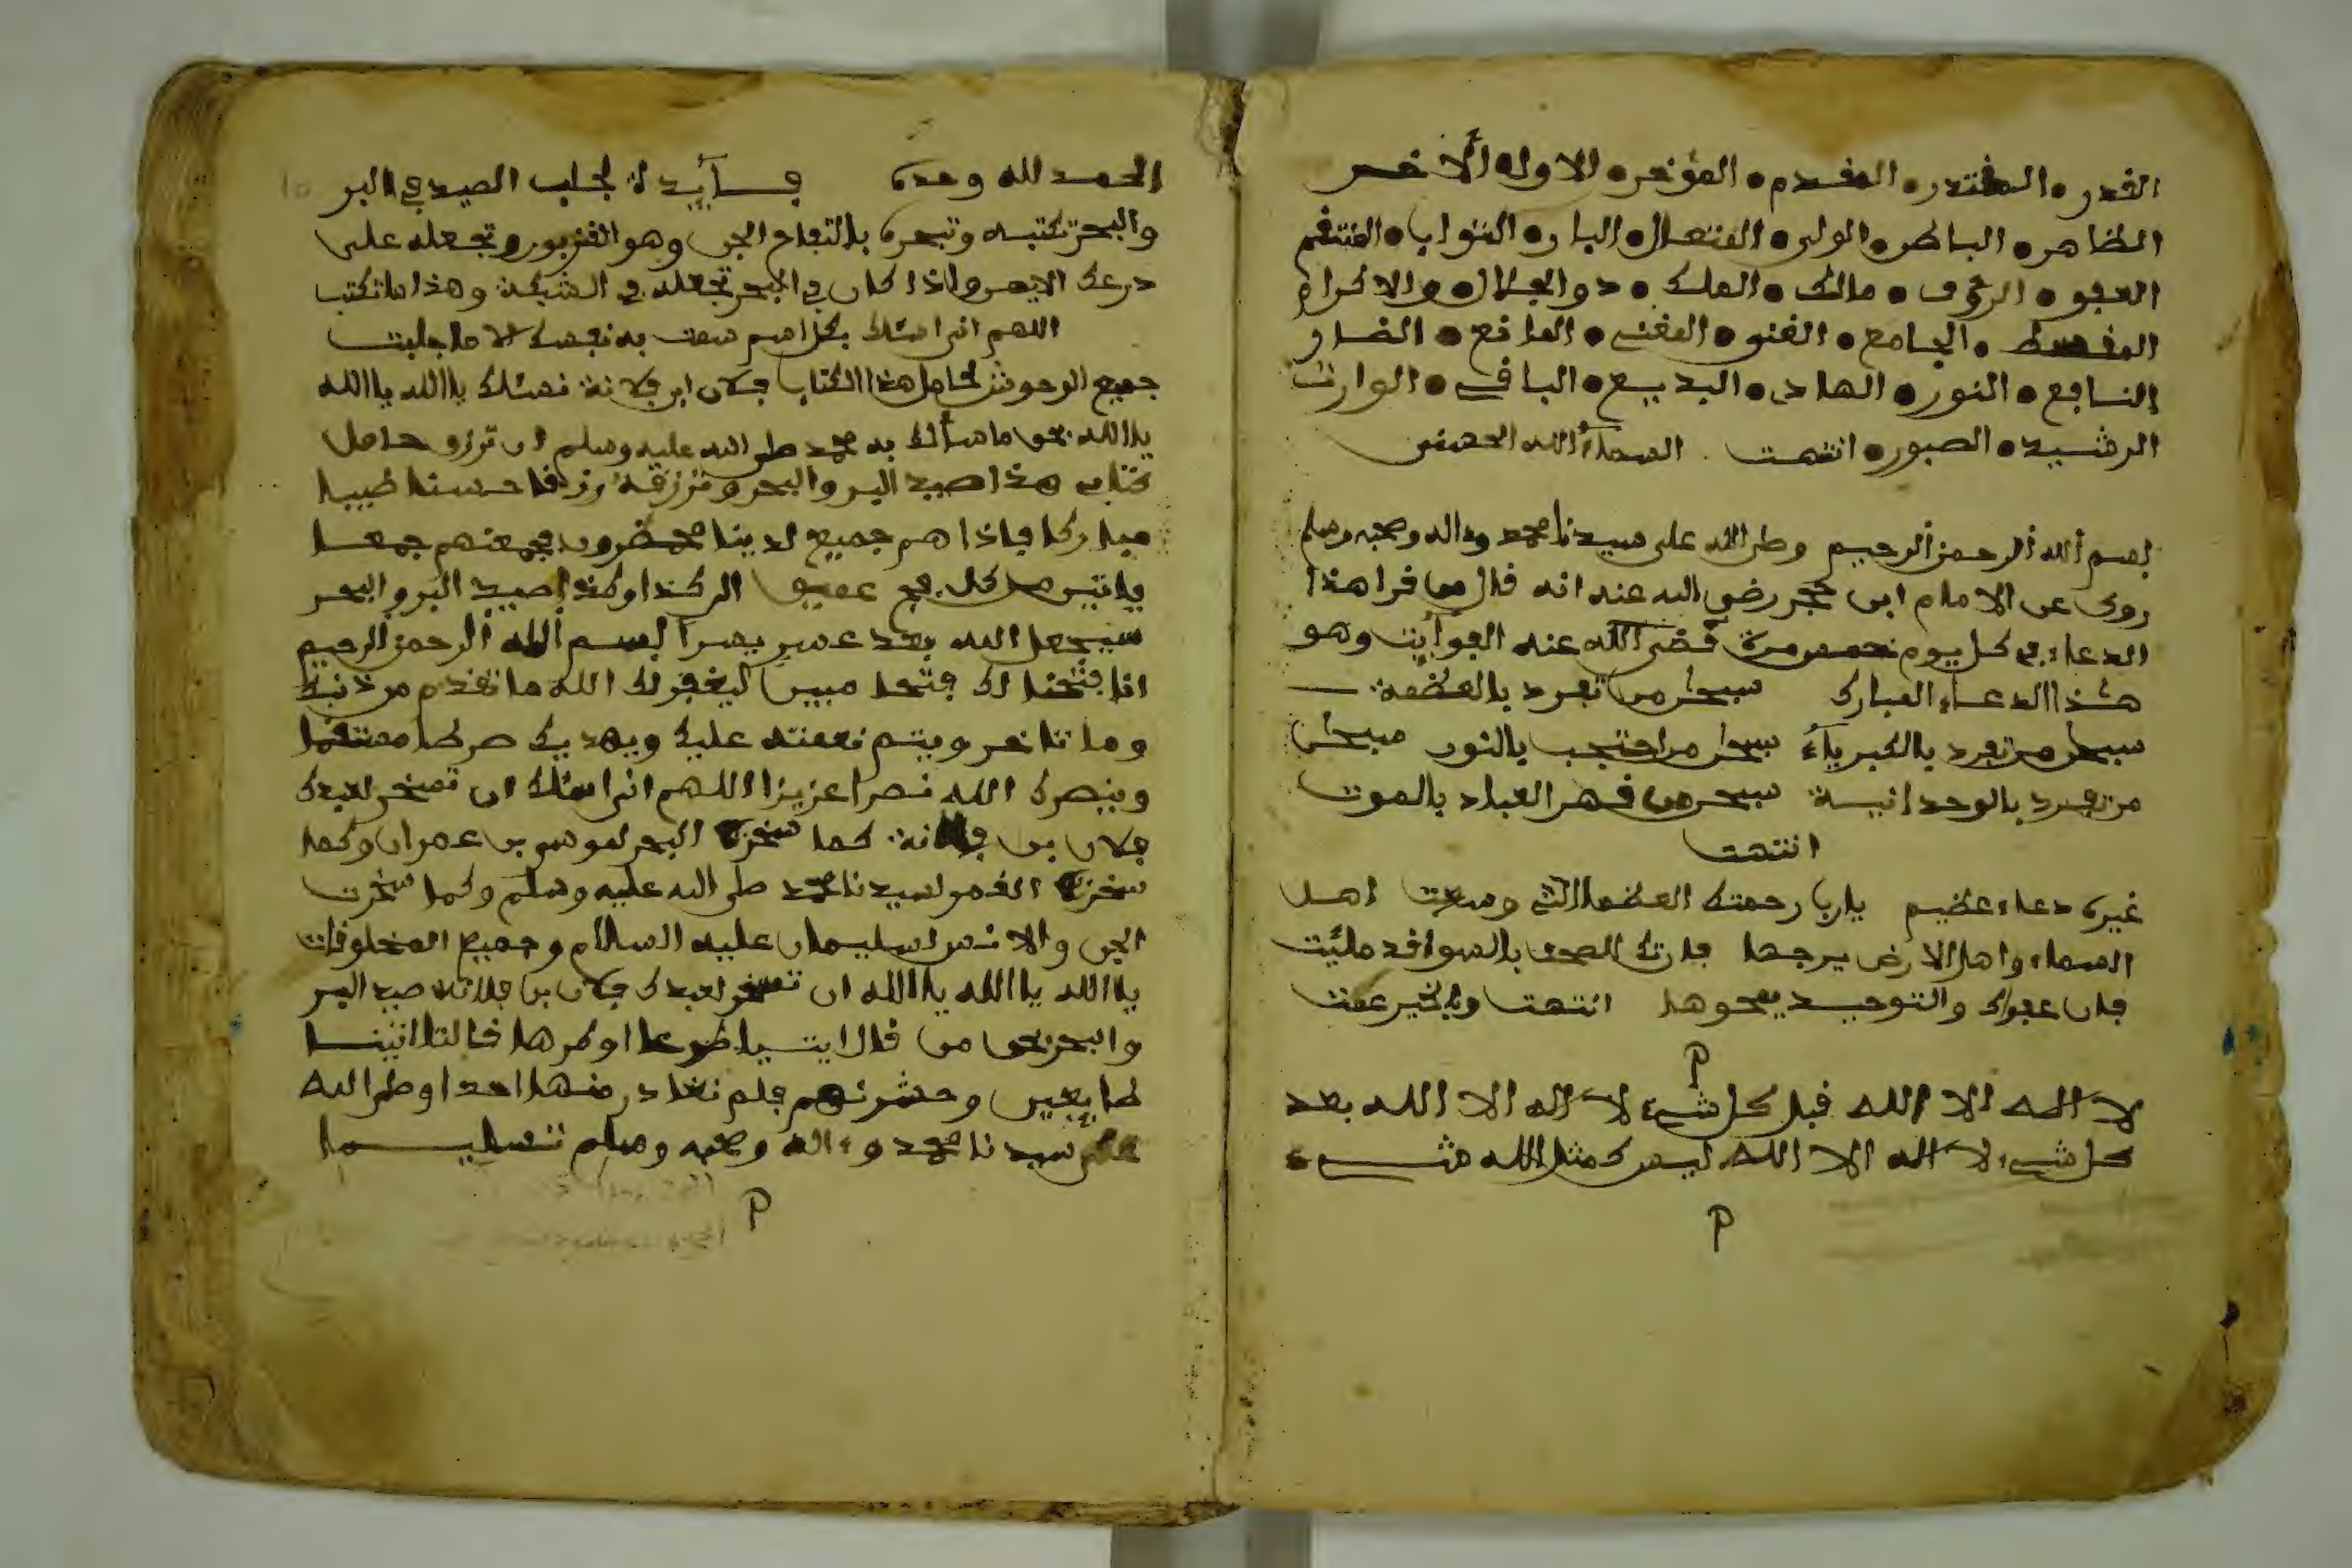 القدر • المقتدر • المقدم • المؤخر • الاول • الاخر
الظاهر • الباطن • الولي • المتعال • البار • التواب • المنتقم
العفو • الرءوف • مالك • الملك • ذو الجلال • والاكرام
المقسط • الجامع • الغني • المغني • المانع • الضار
النافع • النور • الهادي • البديع • الباقي • الوارث
الرشيد • الصبور • انتهت اسماء الله الحسنى
بسم الله الرحمن الرحيم وصلى الله على سيدنا محمد وءاله وصحبه وسلم
روي عن الامام ابن حجر رضي الله عنه انه قال من قرا هذا
الدعاء في كل يوم خمسين مرة قضى الله عنه الفوايت وهو
هذا الدعاء المبارك سبحن من تفرد بالعظمة
سبحن من تفرد بالكبرياء سبحن من احتجب بالنور سبحن
من تفرد بالوحدانية سبحن من قهر العباد بالموت
انتهت
غيره دعاء عظيم يارب رحمتك العظما التي وسعت اهل
السماء واهل الارض يرجها فان تك الصحف بالسوا قد مليت
فان عفوك والتوحيد يمحوها انتهت وبالخير عمت
لا اله الا الله قبل كل شيء لا اله الا الله بعد
كل شيء لا اله الا الله ليس كمثل الله شيء
الحمد لله وحده فايدة لجلب الصيد في البر
والبحر تكتبه وتبخره بالتفاح الجن وهو الغزبور وتجعله على
درعك الايمن واذا كان في البحر تجعله في الشبكة وهذا ما تكتب
اللهم اني اسئلك بكل اسم سميت به نفسك الا ما جلبت
جميع الوحوش لحامل هذا الكتاب فلان ابن فلانة نسئلك يا الله يا الله
يا الله بحق ما سألك به محمد صلى الله عليه وسلم ان ترزق حامل
كتاب هذا صيد البر والبحر وترزقه رزقا حسنا طيبا
مباركا فاذا هم جميع لدينا محضرون فجمعنهم جمعا
ياتين من كل فج عميق الر كذا وكذا صيد البر والبحر
سيجعل الله بعد عسر يسرا بسم الله الرحمن الرحيم
انا فتحنا لك فتحا مبين ليغفر لك الله ما تقدم من ذنبك
وما تاخر ويتم نعمته عليك ويهديك صرطا مستقما
وينصرك الله نصرا عزيزا اللهم اني اسئلك ان تسخر لعبدك
فلان بن فلانة كما سخرت البحر لموسى بن عمران وكما
سخرت القمر لسيدنا محمد صلى الله عليه وسلم وكما سخرت
الجن والانس لسليمان عليه السلام وجميع المخلوقات
يا الله يا الله يا الله ان تسخر لعبدك فلان بن فلانة صيد البر
والبحر بحق من قال ايتيا طوعا او كرها قالتا اتينا
طايعين وحشرنهم فلم نغادر منها احدا وصلى الله
على سيدنا محمد وءاله وصحبه وسلم تسليما